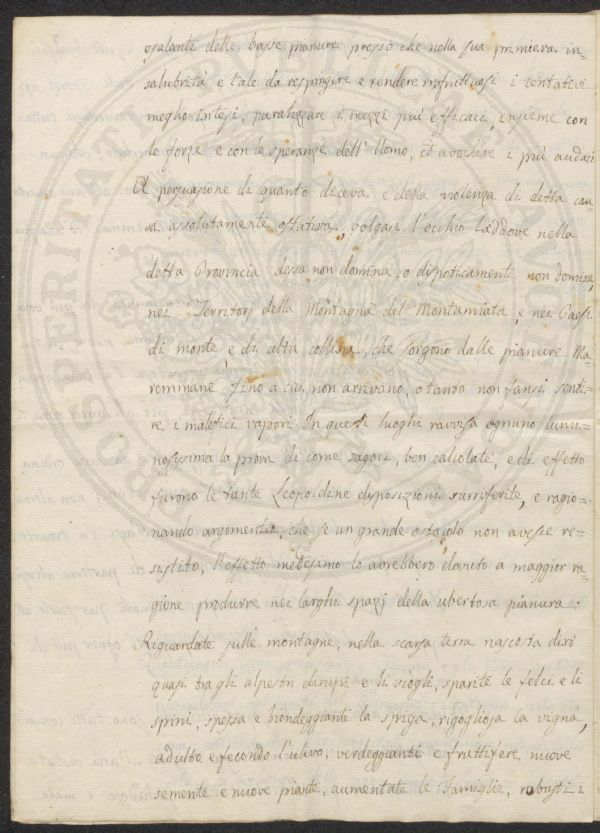 esalante delle basse pianure presso che nella sua primiera in=
salubrità, e tale da respingere e rendere infruttuosi i tentativi
meglio intesi, paralizzare i mezzi più efficaci, insieme con
le forze e con le speranze dell'Uomo, ed avvilire i più audaci.
A persuasione di quanto diceva e della violenza di detta cau=
sa assolutamente ostativa, volgasi l'occhio laddove nella
detta Provincia dessa non domina, o dispoticamente non domina,
nei Territorj della Montagna del Montamiata, e nei Paesi
di monte e di alta collina, che sorgono dalle pianure Ma=
remmane fino a cui non arrivano, o tanto non fansi senti=
re i malefici vapori. In questi luoghi ravvisa ognuno lumi=
nosissima la prova di come sagaci, ben calcolate, e di effetto
furono le tante Leopoldine disposizioni surriferite, e ragio=
nando argomenta, che se un grande ostacolo non avesse re=
sistito, l'effetto medesimo lo avrebbero dovuto a maggior ra=
gione produrre nei larghi spazj della ubertosa pianura.
Reguardate sulle montagne, nella scarsa terra nascosta dirò
quasi tra gli alpestri dirupi e li scogli, sparite le felci e li
sprini, spessa e biondeggiante la spiga, rigogliosa la vigna,
adulto e fecondo l'ulivo, verdeggianti e fruttifere nuove
semente e nuove piante, aumentate le famiglie, robusti i